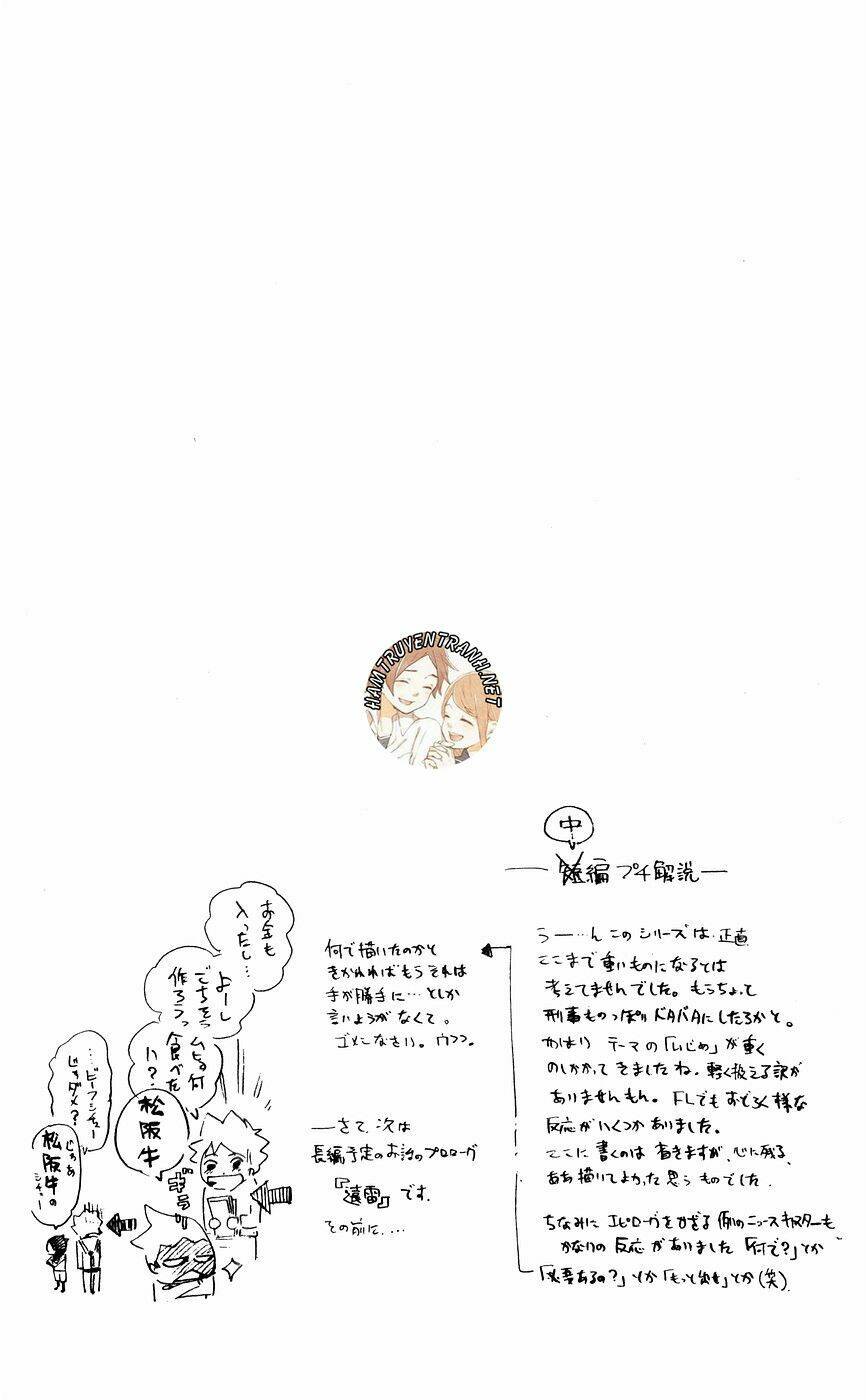 中
編プチ解説
うー…んこのシリーズは、正直
ここまで重いものになるとは
考えてませんでした。もうちょっと
刑事ものっぽくドタバタにしたろかと。
やはりテーマの「いじめ」が重く
のしかかってきましたね。軽く扱える訳が
ありませんもん。FLでもおどろく様な
反応がいくつかありました。
ここに書くのは省きますが、心に残る、
ああ描いてよかった思うものでした。
ちなみにエピローグをかざる例のニュースキャスターも
かなりの反応がありました「何で?」とか
「必要あるの?」とか「もっと出せ」とか(笑)
何で描いたのかと
きかれればもうそれは
手が勝手に…としか
言いようがなくて。
ゴメンなさい。ウフフ。
―さて、次は
長編予定のお話のプロローグ
『遠雷』です。
その前に….
お金も
入ったし…
よーし
ごちそう
作ろうっ
ムヒョ何
食べた
い?
松阪牛
ギラッ
…ビーフシチュー
じゃダメ?
じゃあ
松阪牛の
シチュー
HAMTRUYENTRANH.NET